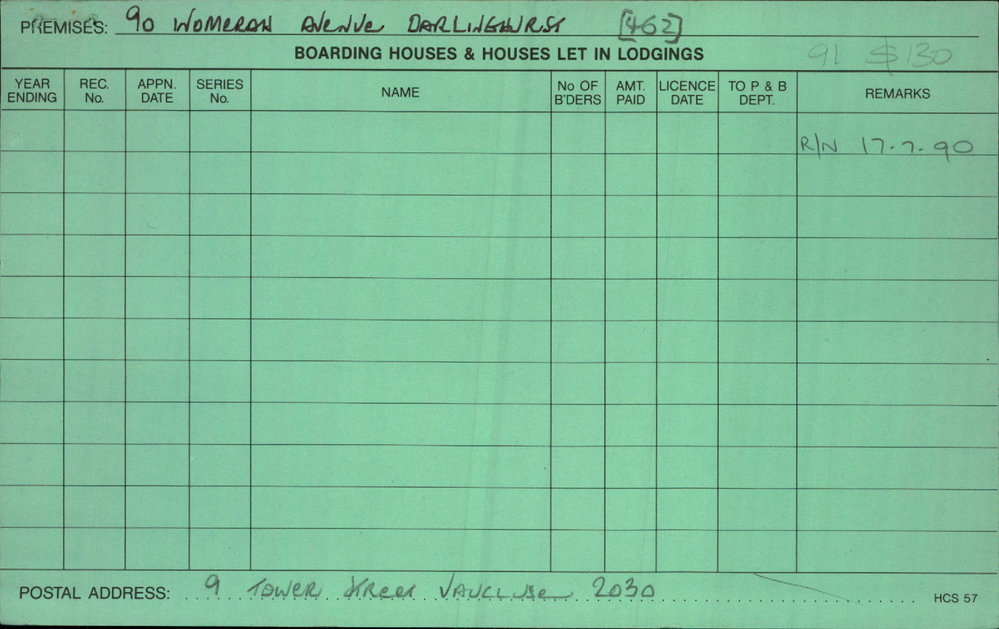 PREMISES: 90 WOMERAH AVENUE DARLINGHURST [462]
BOARDING HOUSES & HOUSES LET IN LODGINGS 91 $130
YEAR ENDING REC. No. APPN. DATE SERIES No. NAME No OF B'DERS AMT. PAID LICENCE DATE TO P & B DEPT. REMARKS
R/N 17-7-90
POSTAL ADDRESS: 9 TOWER STREET VAUCLUSE 2030 HCS 57